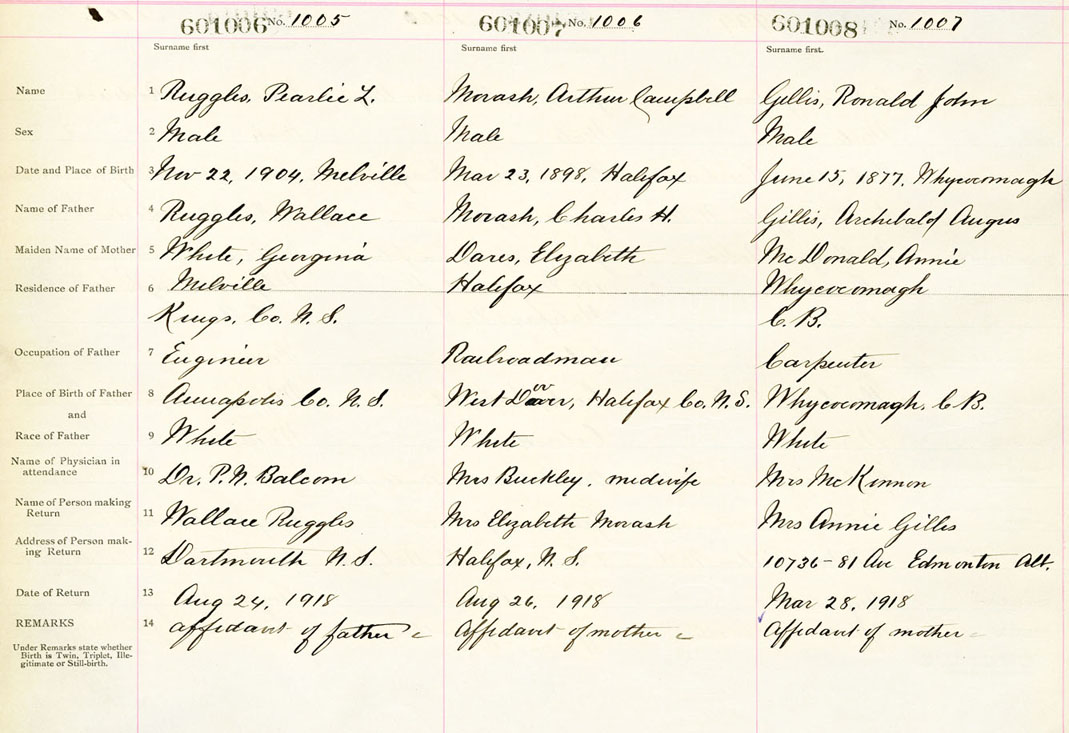 601006 No. 1005 601007 No. 1006 601008 No. 1007
Surname first Surname first Surname first.
Name 1 Ruggles, Pearlie L. Morash, Arthur Campbell Gillis, Ronald John
Sex 2 Male Male Male
Date and Place of Birth 3 Nov 22, 1904, Melville Mar 23, 1898, Halifax June 15, 1877, Whycocomagh
Name of Father 4 Ruggles, Wallace Morash, Charles H. Gillis, Archibald Angus
Maiden Name of Mother 5 White, Georgina Dares, Elizabeth McDonald, Annie
Residence of Father 6 Melville Halifax Whycocomagh
Kings, Co. N.S. C.B.
Occupation of Father 7 Engineer Railroadman Carpenter
Place of Birth of Father 8 Annapolis Co. N.S. West Dover, Halifax Co. N.S. Whycocomagh, C.B.
and
Race of Father 9 White White White
Name of Physician in
attendance 10 Dr. P.N. Balcom Mrs Buckley, midwife Mrs McKinnon
Name of Person making
Return 11 Wallace Ruggles Mrs Elizabeth Morash Mrs Annie Gillis
Address of Person mak-
ing Return 12 Dartmouth N.S. Halifax, N.S. 10736-81 Ave Edmonton Alt.
Date of Return 13 Aug 24, 1918 Aug 26, 1918 Mar 28, 1918
REMARKS 14 affidavit of father Affidavit of mother Affidavit of mother
Under Remarks state whether
Birth is Twin, Triplet, Ille-
gitimate or Still-birth.